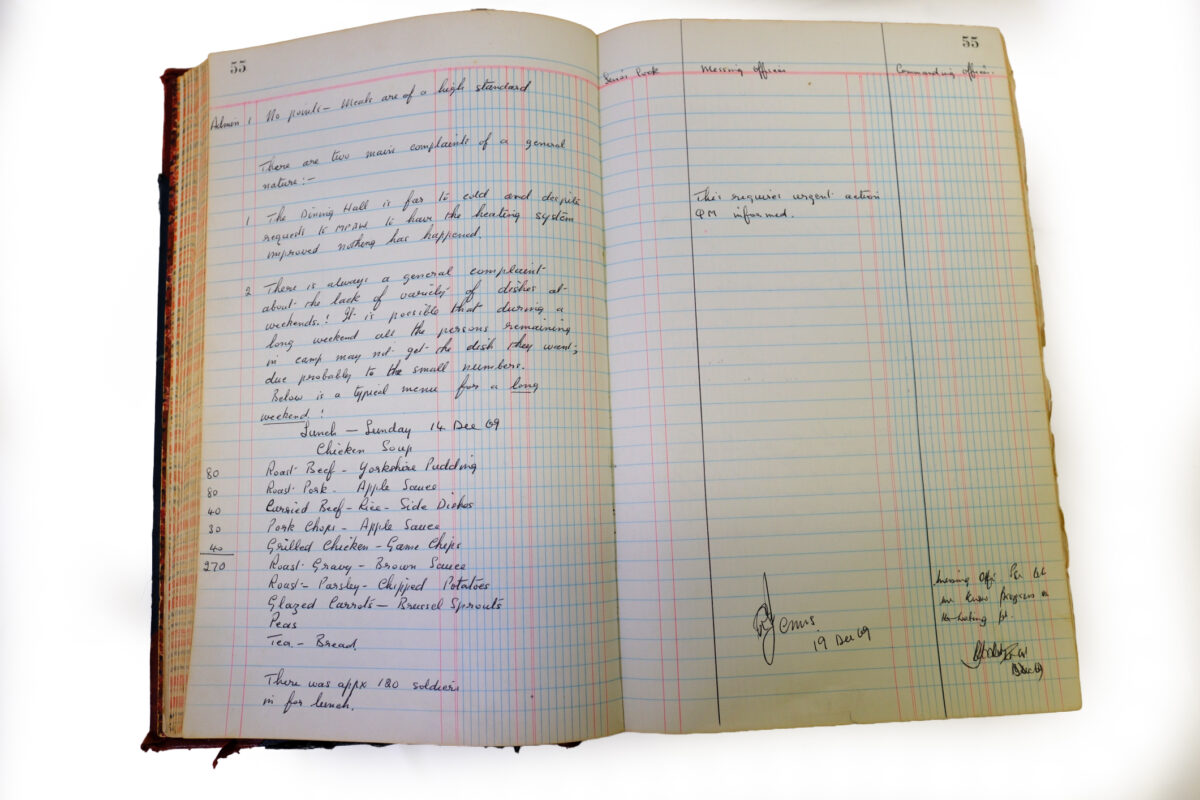 55
Admin 1 No points - Meals are of a high standard
There are two main complaints of a general
nature:-
1 The Dining Hall is far to cold and despite
requests to MPBW to have the heating system
improved nothing has happened.
2 There is always a general complaint
about the lack of variety of dishes at
weekends! It is possible that during a
long weekend all the persons remaining
in camp may not get the dish they want;
due probably to the small numbers.
Below is a typical menu for a long
weekend!
Lunch - Sunday 14 Dec 69
Chicken Soup
80 Roast Beef - Yorkshire Pudding
80 Roast Pork. Apple Sauce
40 Curried Beef - Rice - Side Dishes
30 Pork Chops - Apple Sauce
40 Grilled Chicken - Game Chips
270 Roast Gravy - Brown Sauce
Roast - Parsley - Chipped Potatoes
Glazed Carrots - Brussel Sprouts
Peas
Tea - Bread
There was appx 120 soldiers
in for lunch.
55
Senior Cook Messing Officer Commanding Officer.
This requires urgent action
QM informed.
19 Dec 69
Messing Offr.
me know progress on
the heating pt.
Dec 69